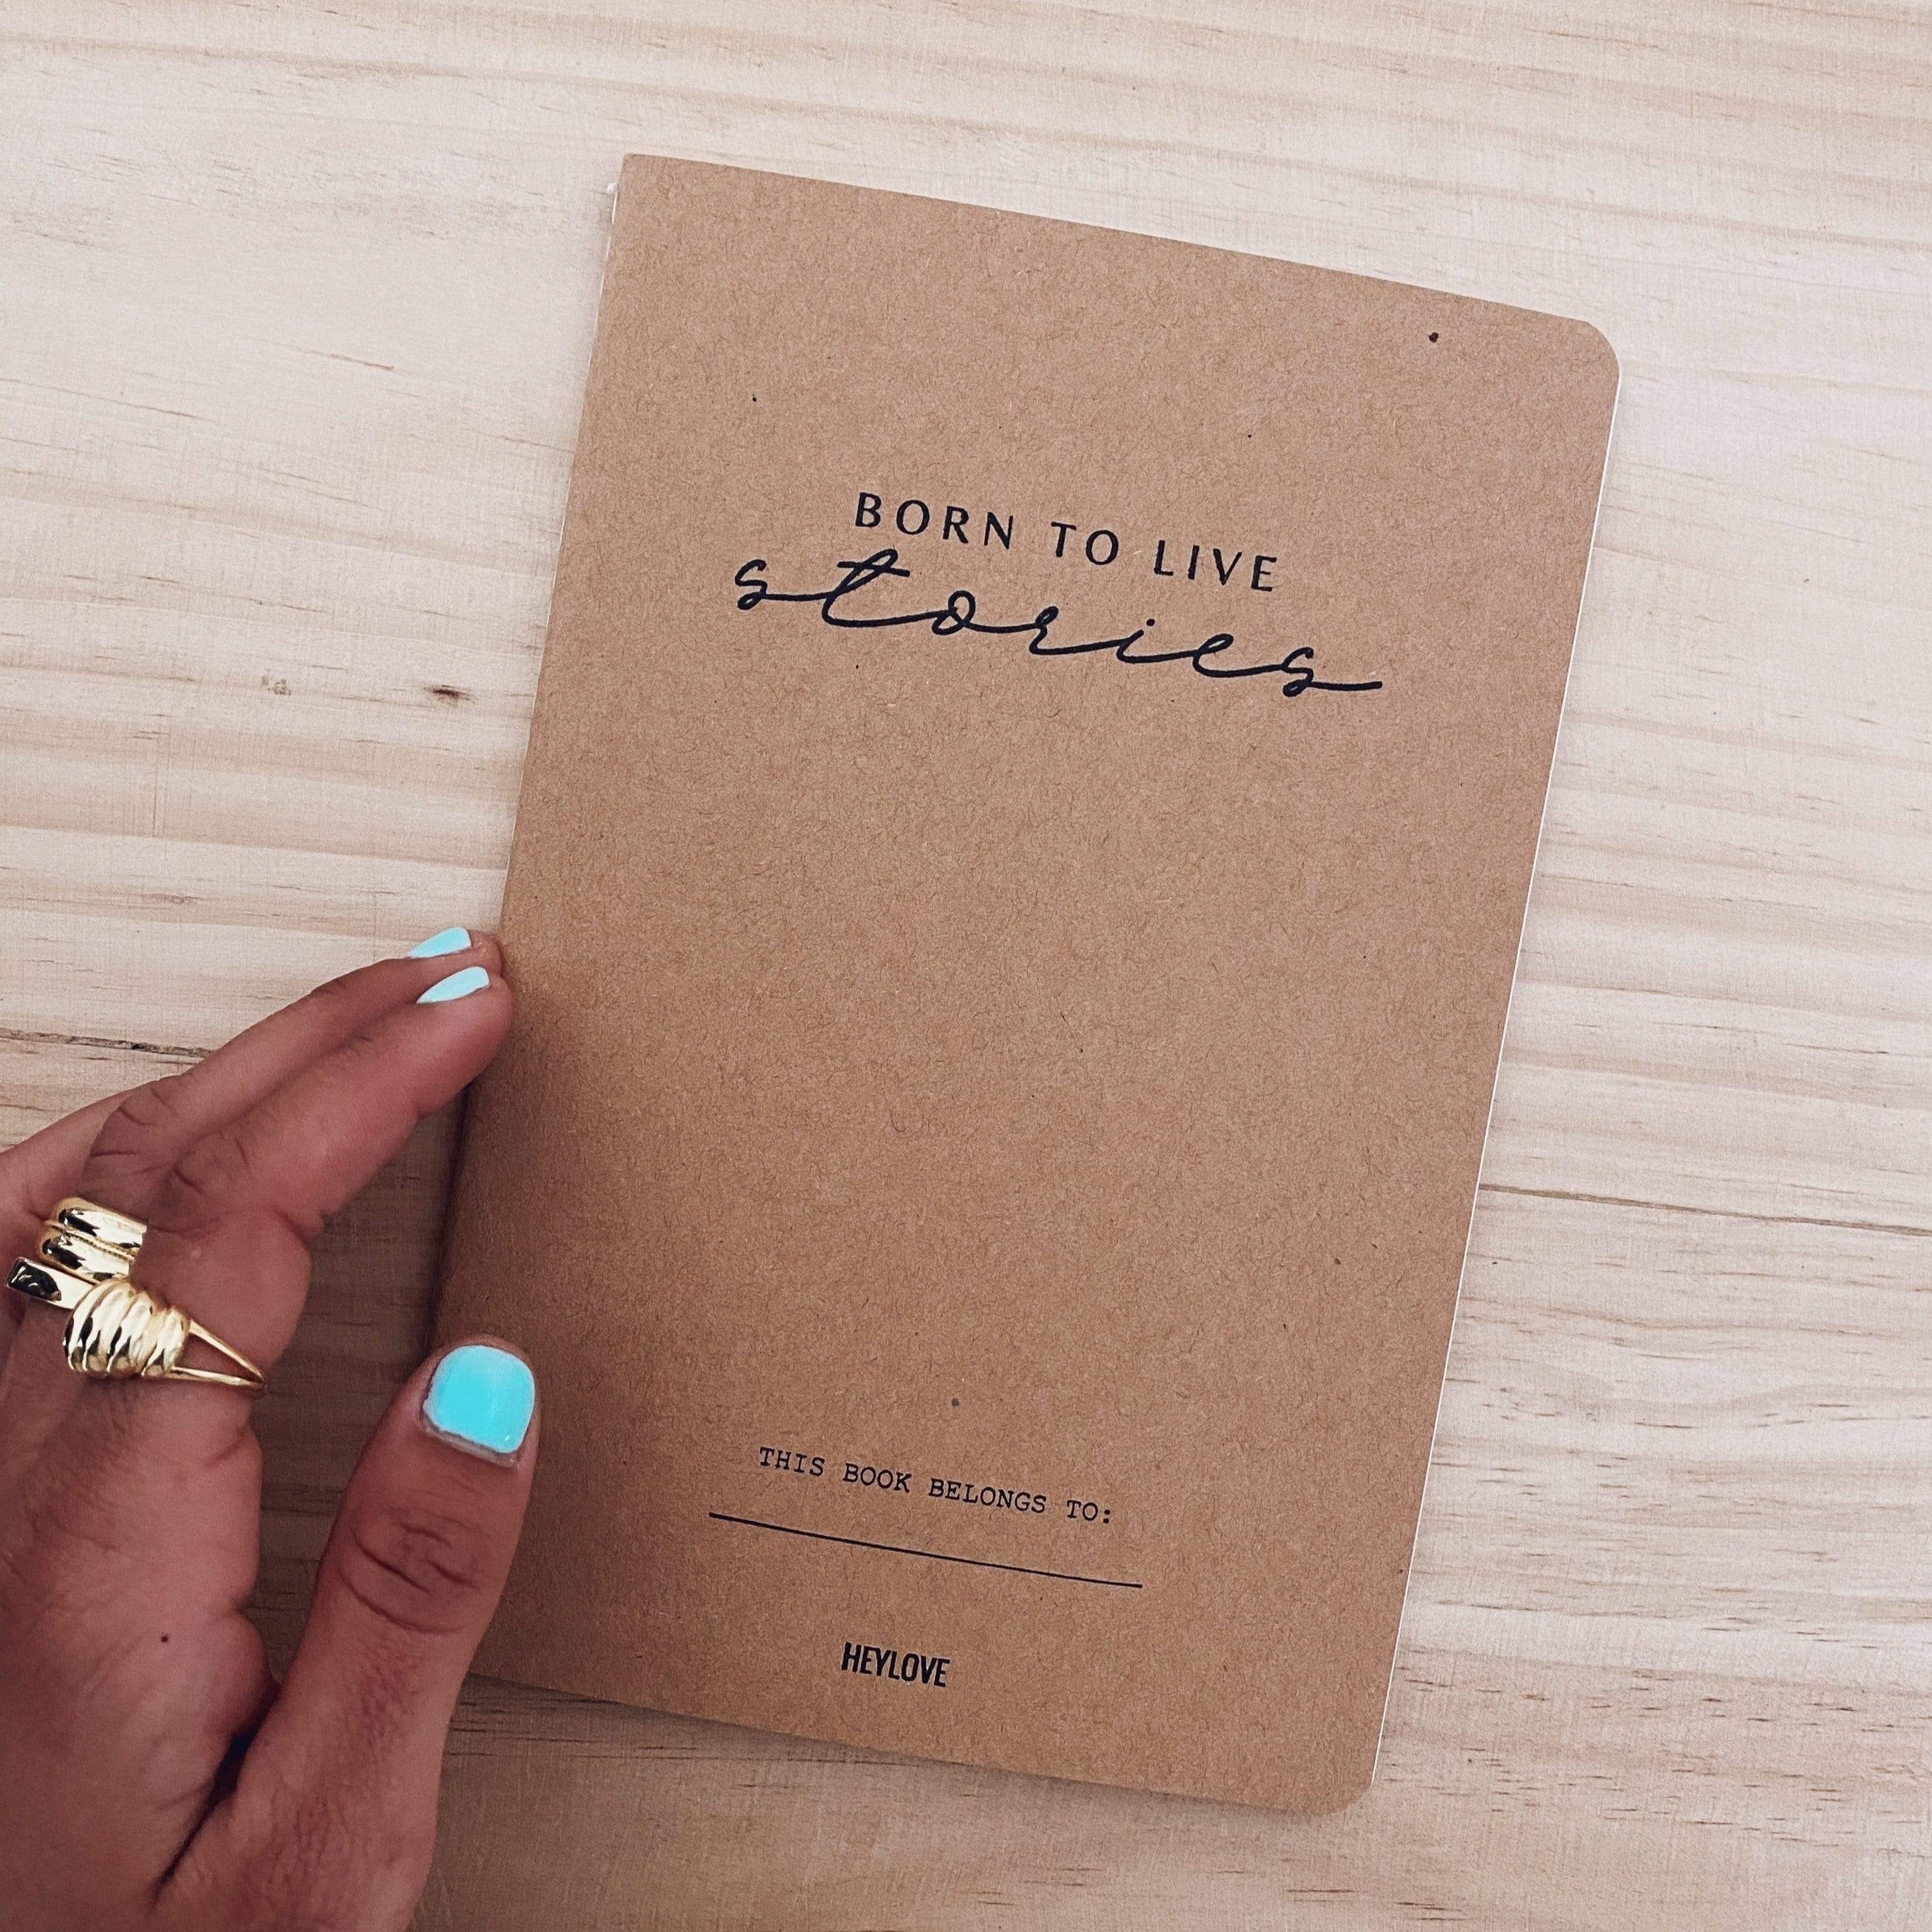 BORN TO LIVE
stories
THIS BOOK BELONGS TO:
HEYLOVE